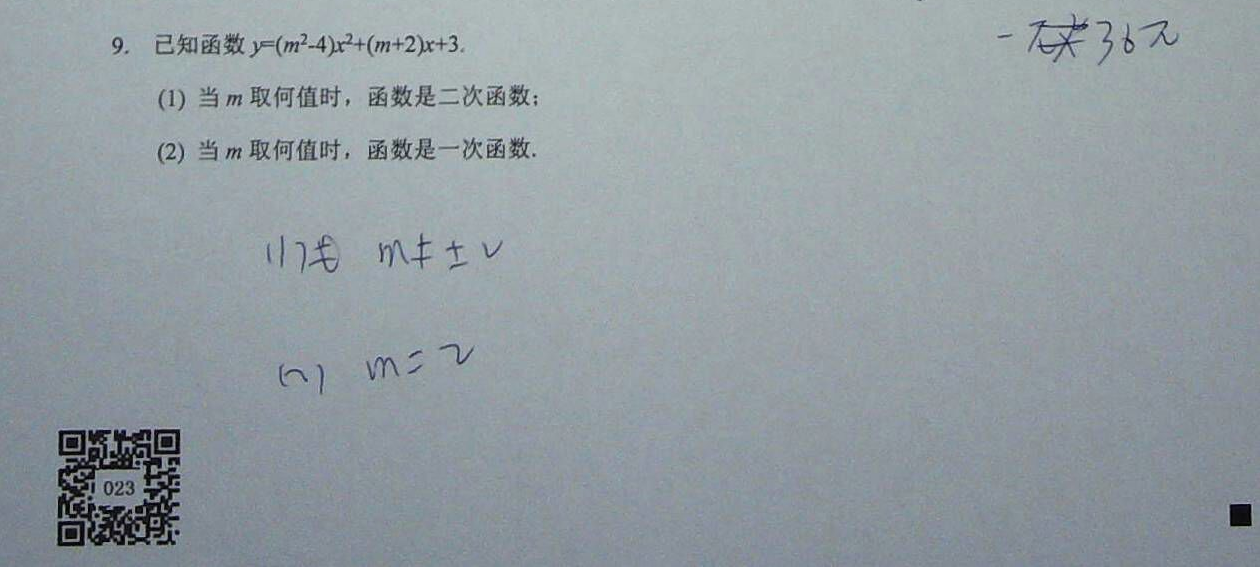 9. 已知函数 y=(m²-4)x²+(m+2)x+3.
(1) 当 m 取何值时，函数是二次函数；
(2) 当 m 取何值时，函数是一次函数.
36元
(1) m≠±2
(2) m=2
023